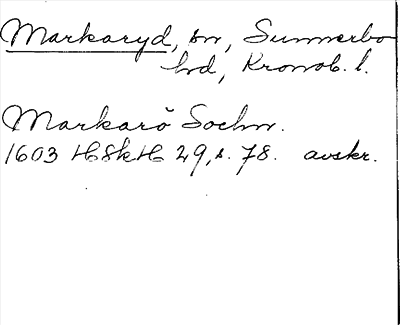 Markaryd, sn, Sunnerbo
hd, Kronob. l.
Markarö Sochn.
1603 HSkH 29, s. 78. avskr.